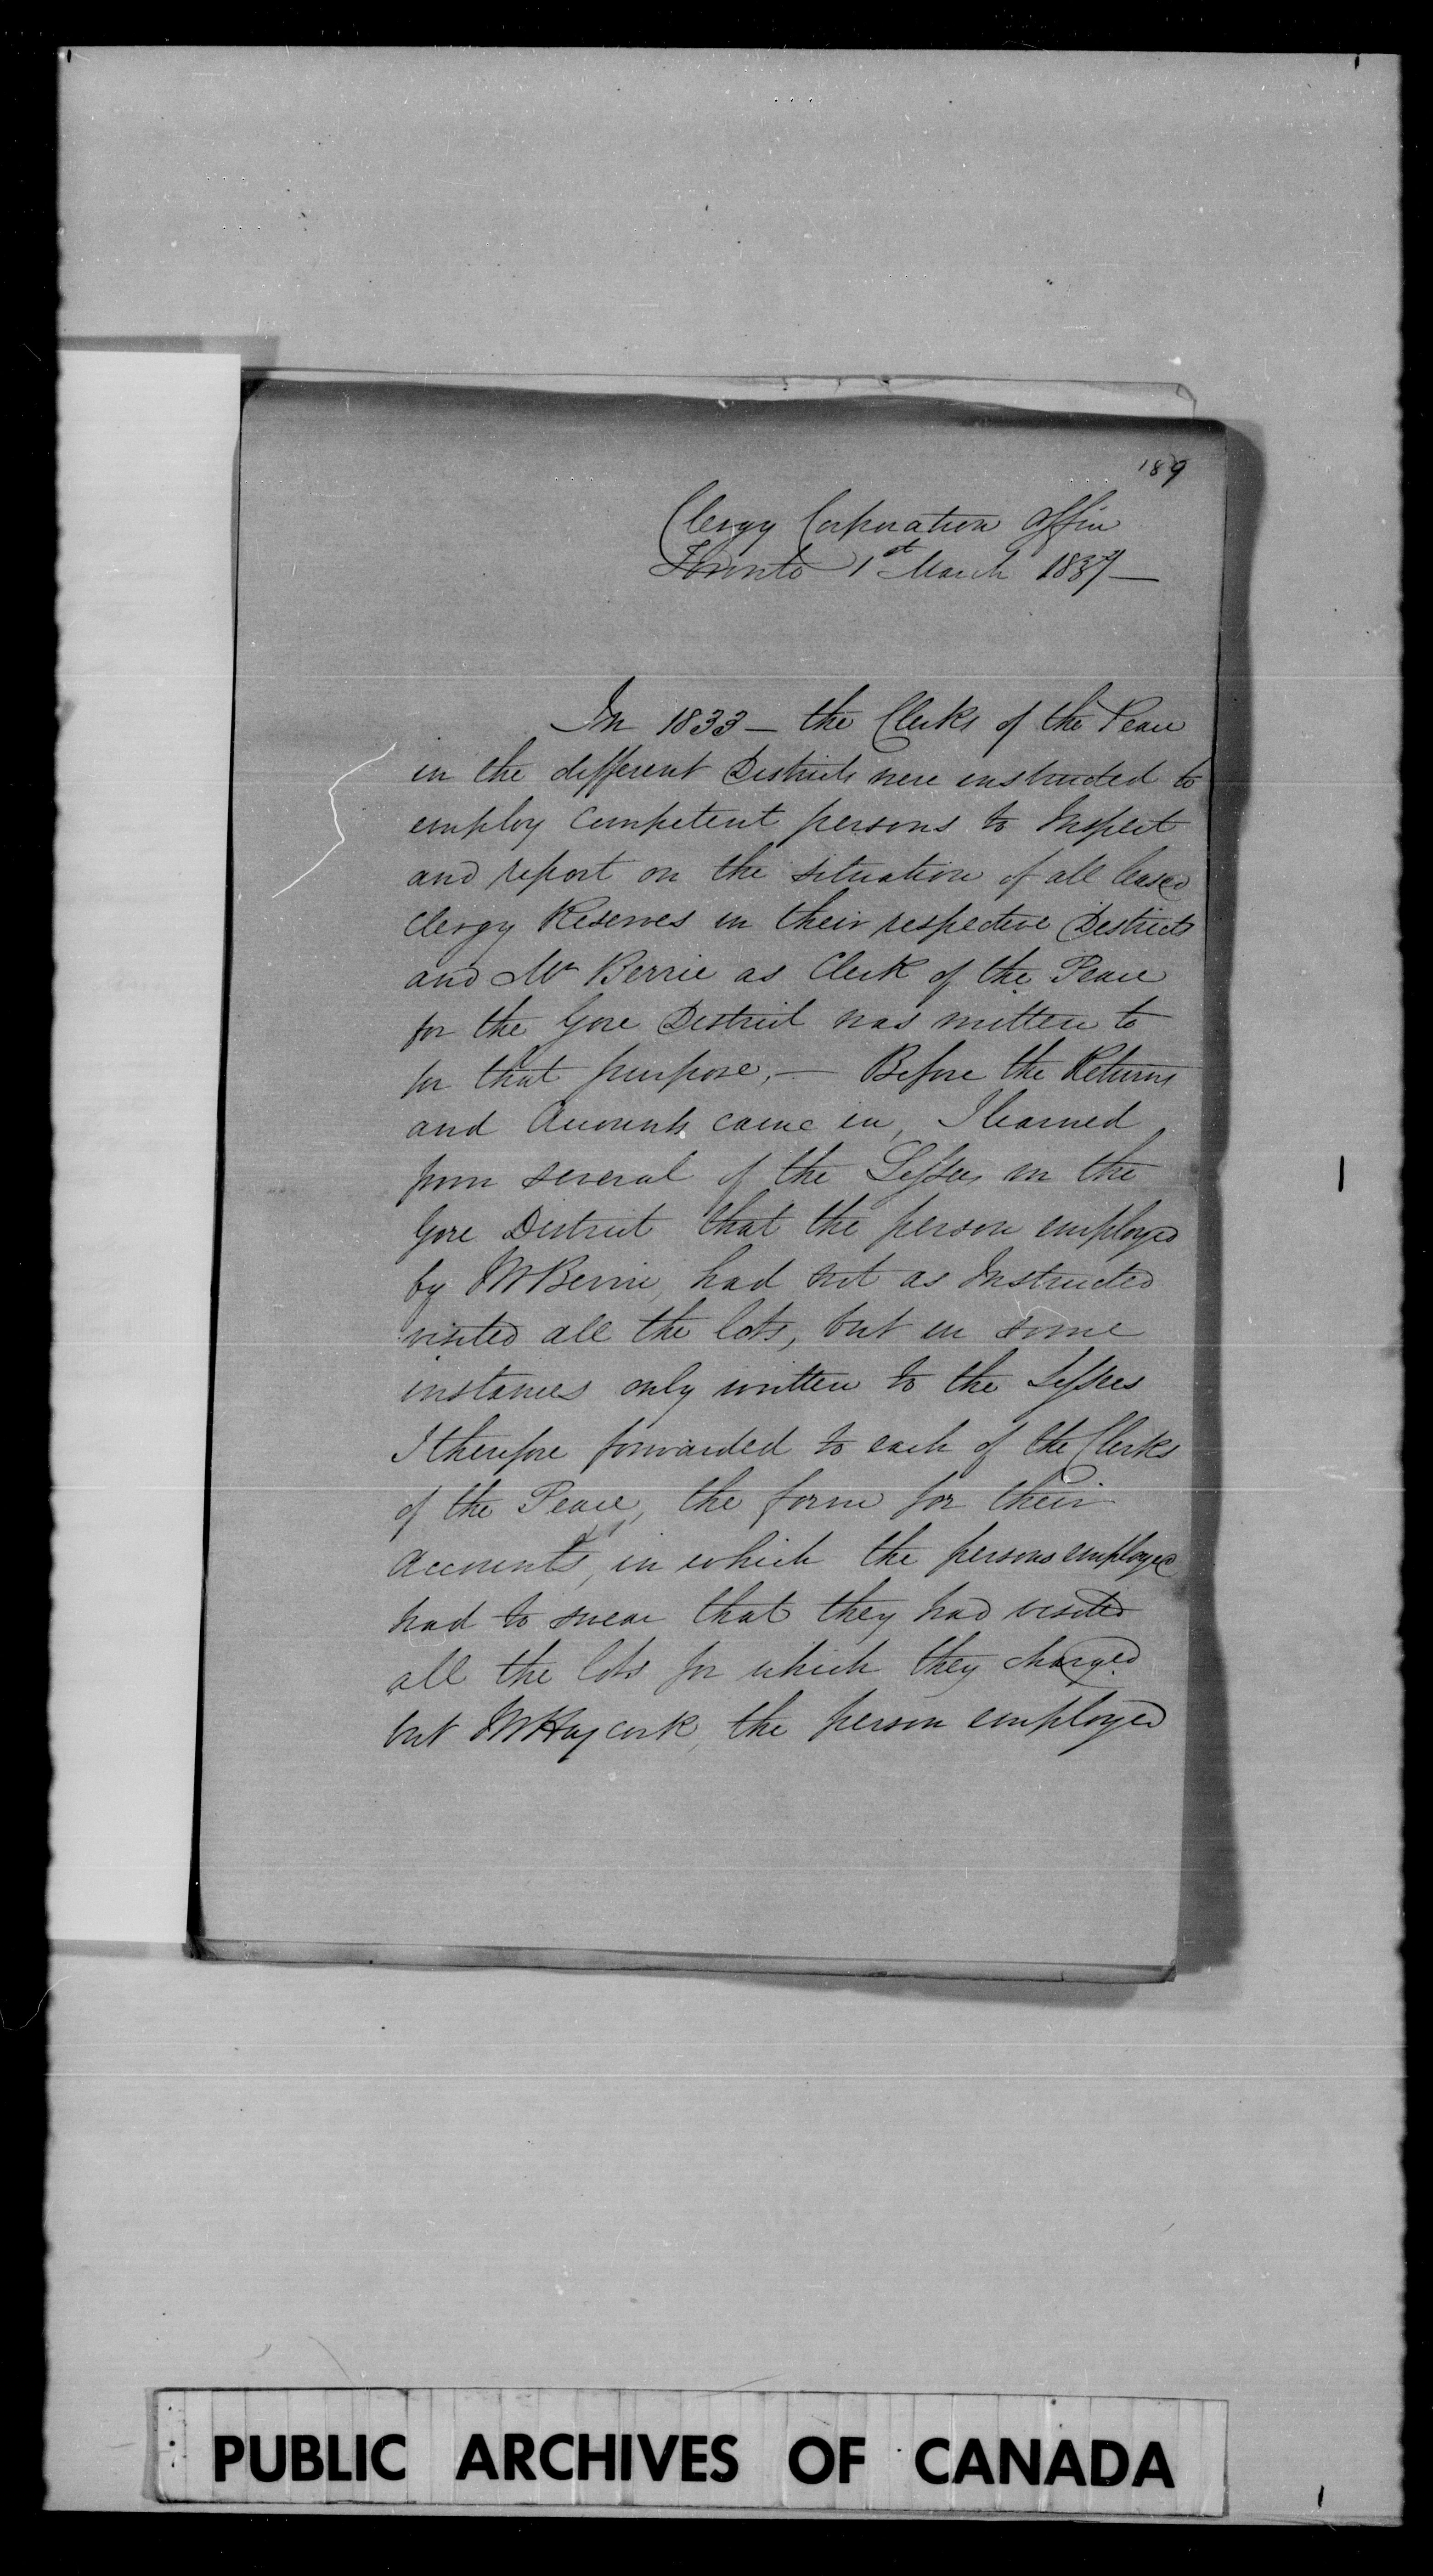 189
Clergy Corporation Office
Toronto 1st March 1837 —
In 1833 — the Clerks of the Peace
in the different Districts were instructed to
employ Competent persons to Inspect
and report on the situation of all leased
Clergy Reserves in their respective Districts
and Mr Berrie as Clerk of the Peace
for the Gore District was written to
for that purpose, — Before the Returns
and Accounts came in, I learned
from several of the Lessees in the
Gore District that the person employed
by Mr Berrie, had not as Instructed
visited all the lots, but in some
instances only written to the Lessees
I therefore forwarded to each of the Clerks
of the Peace, the form for their
Accounts, in which the persons employed
had to swear that they had visited
all the lots for which they charged
but Mr Haycock, the person employed
PUBLIC ARCHIVES OF CANADA